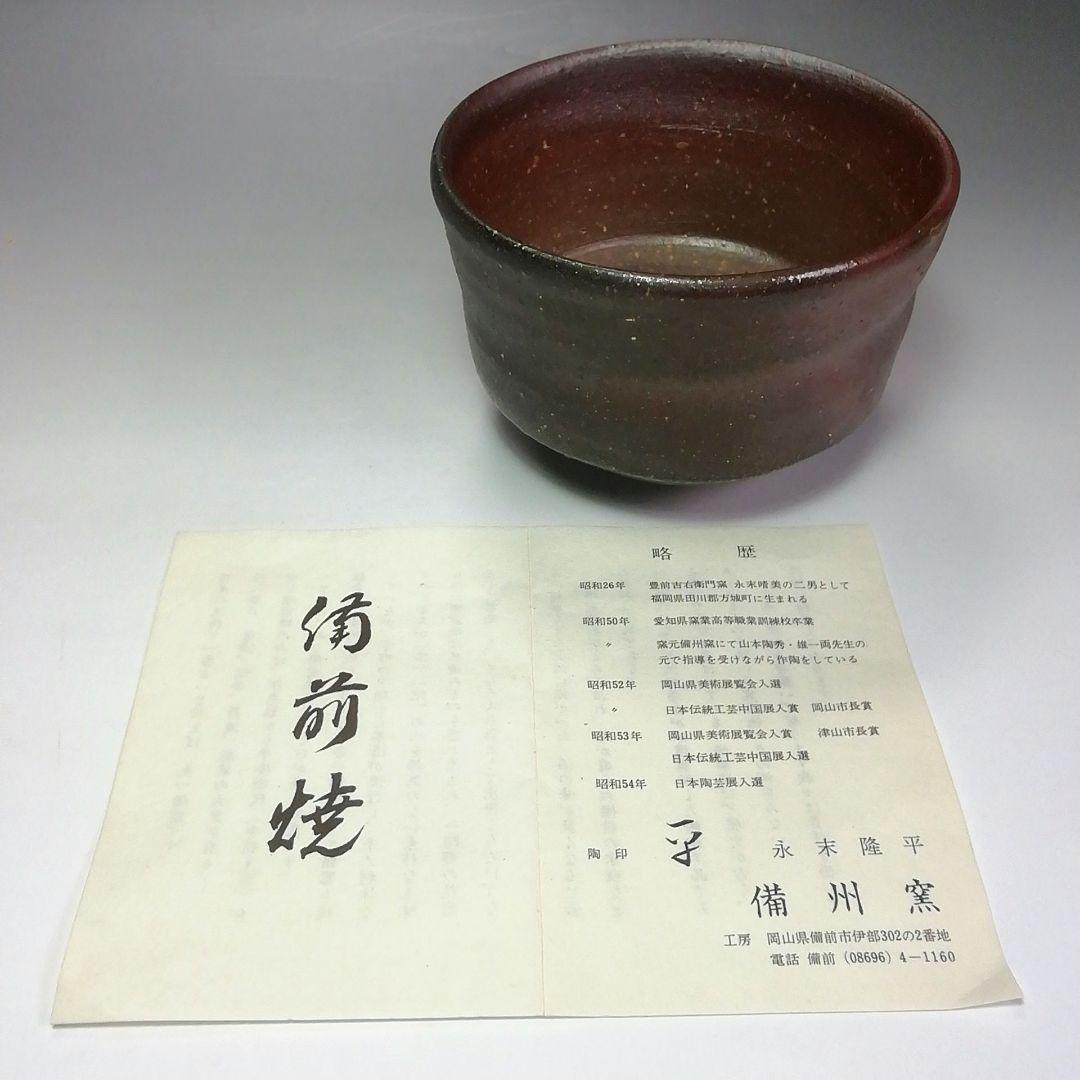 備前焼
略歴
昭和26年 豊前吉右衛門窯 永末晴美の二男として
福岡県田川郡方城町に生まれる
昭和50年 愛知県窯業高等職業訓練校卒業
〃 窯元備州窯にて山本陶秀・雄一両先生の
元で指導を受けながら作陶をしている
昭和52年 岡山県美術展覧会入選
〃 日本伝統工芸中国展入賞 岡山市長賞
昭和53年 岡山県美術展覧会入賞 津山市長賞
日本伝統工芸中国展入選
昭和54年 日本陶芸展入選
陶印 平 永末隆平
備州窯
工房 岡山県備前市伊部302の2番地
電話 備前 (08696) 4-1160